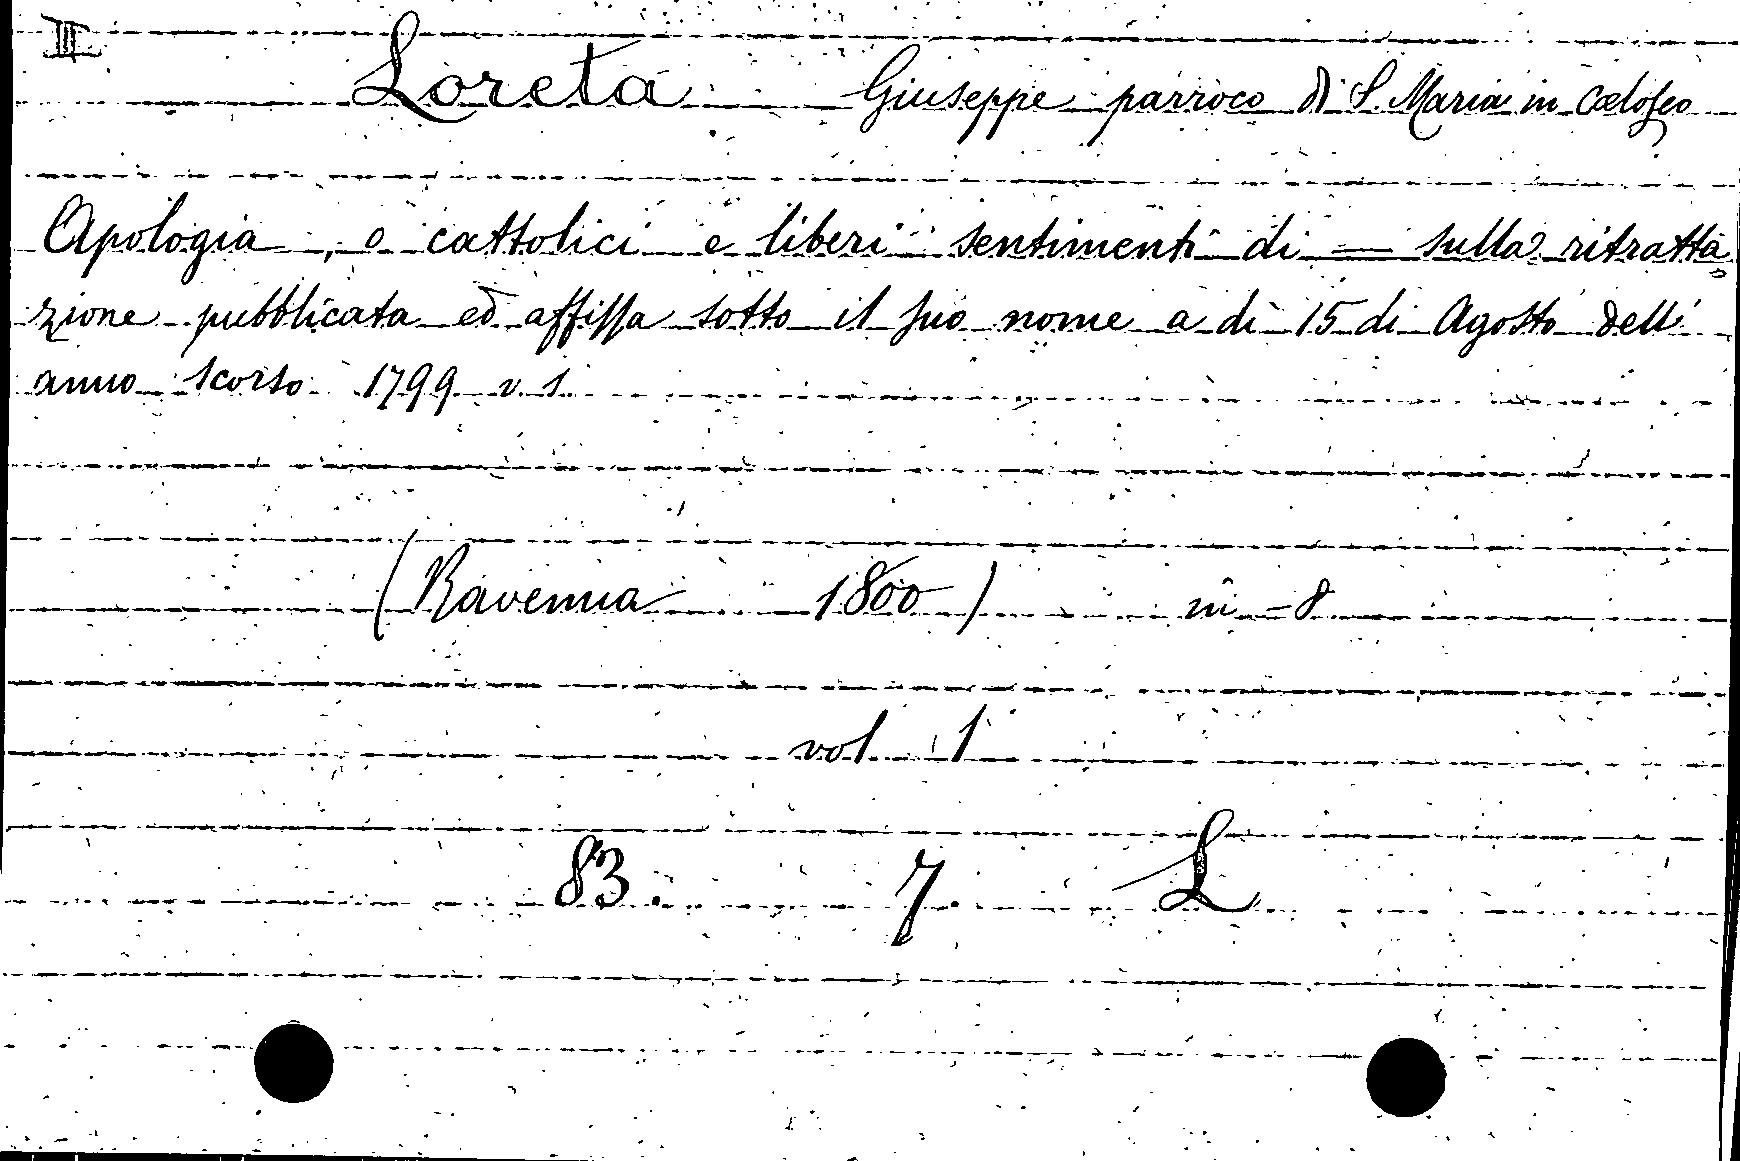 III
Loreta Giuseppe parroco di S. Maria in Cœloseo
Apologia, o cattolici e liberi sentimenti di — sulla ritratta
zione pubblicata ed affissa sotto il suo nome a dì 15 di Agosto dell'
anno scorso 1799 v. s.
(Ravenna 1800) in-8
vol 1
83. 7. L